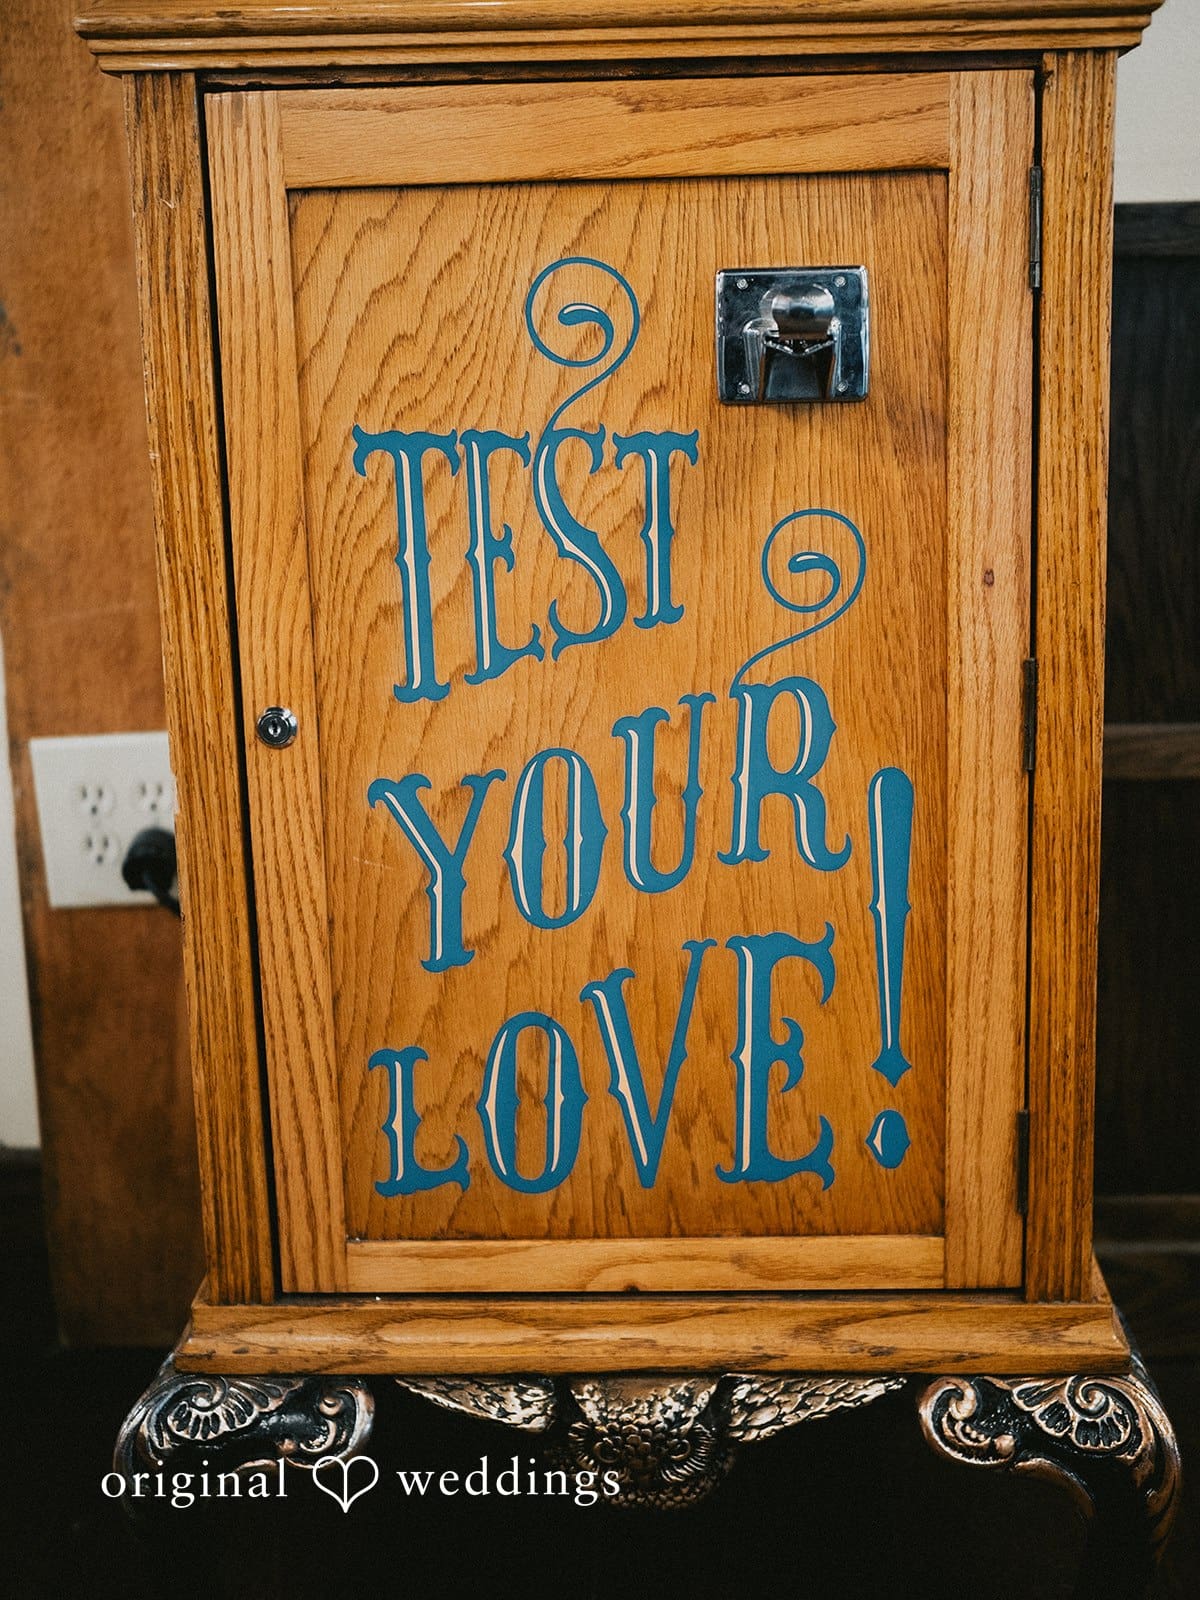 TEST
YOUR
LOVE!
original weddings